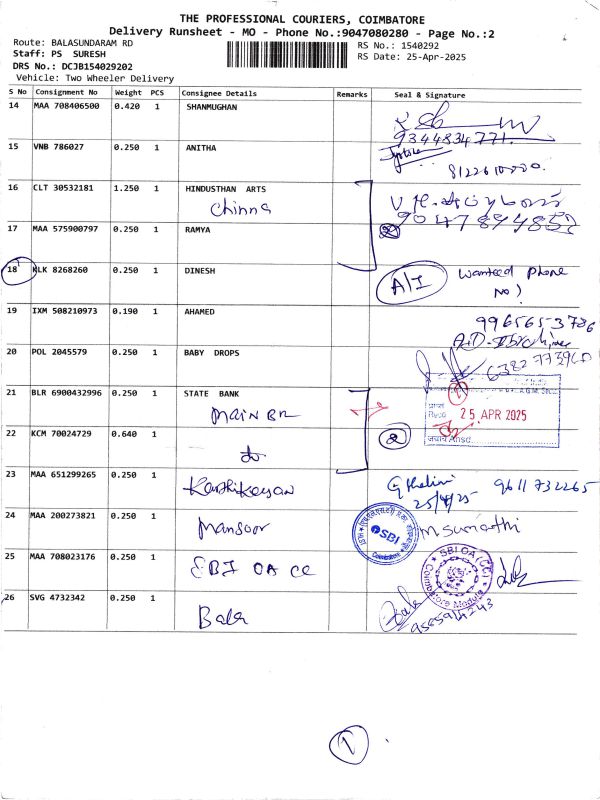 THE PROFESSIONAL COURIERS, COIMBATORE
Delivery Runsheet - MO - Phone No.:9047080280 - Page No.:2
Route: BALASUNDARAM RD
RS No.: 1540292
Staff: PS SURESH
RS Date: 25-Apr-2025
DRS No.: DCJB154029202
Vehicle: Two Wheeler Delivery
S No Consignment No Weight PCS Consignee Details Remarks Seal & Signature
14 MAA 708406500 0.420 1 SHANMUGHAN
9344834771.
15 VNB 786027 0.250 1 ANITHA
8122610000.
16 CLT 30532181 1.250 1 HINDUSTHAN ARTS
Chinna
9047894857
17 MAA 575900797 0.250 1 RAMYA
2
18 KLK 8268260 0.250 1 DINESH
A/I Wanteed Phone
No)
19 IXM 508210973 0.190 1 AHAMED
9965653786
20 POL 2045579 0.250 1 BABY DROPS
21 BLR 6900432996 0.250 1 STATE BANK
Main BR
25 APR 2025
22 KCM 70024729 0.640 1
do
2
23 MAA 651299265 0.250 1 Karthikeyan
25/4/25 9611732265
24 MAA 200273821 0.250 1 Mansoor
SBI
Coimbatore
M Sumathi
25 MAA 708023176 0.250 1 SBI OA CC
SBI OA (CC)
Coimbatore Module
26 SVG 4732342 0.250 1 Bala
Bala
1